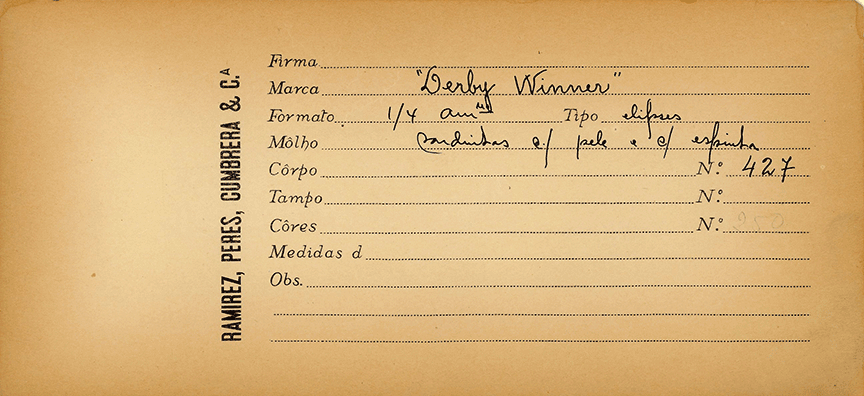 RAMIREZ, PERES, CUMBRERA & C.ᴬ
Firma
Marca "Derby Winner"
Formato 1/4 am^no Tipo elipses
Môlho sardinhas c/ pele e c/ espinha
Côrpo N.º 427
Tampo N.º
Côres N.º 950
Medidas d
Obs.